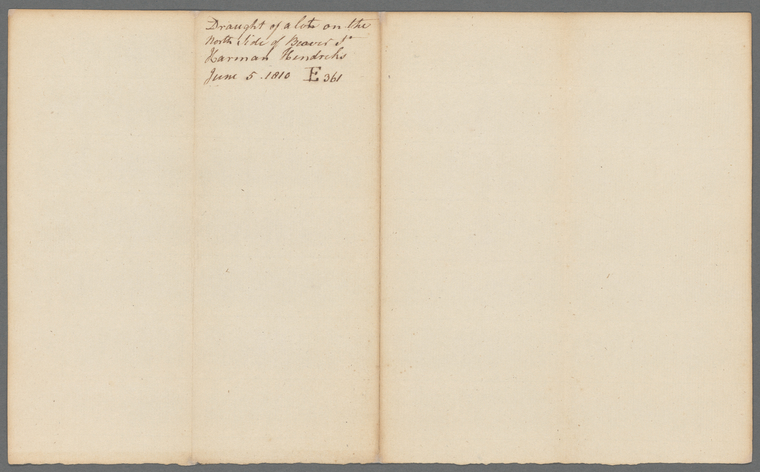 Draught of a lot on the
North Side of Beaver St
Harman Hendricks
June 5. 1810 E 361